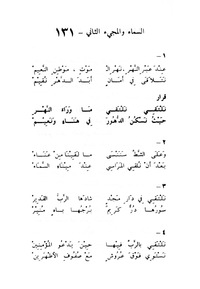 السماء والمجيء الثاني - ١٣١
١ -
عِندَ عبْرِ النَّهرِ، نَهْرِ الْ مَوْتِ، مَوطِنِ النَّعِيمْ
نَتَلاقى في أمَانٍ أبَدَ الدَّهْرِ نُقِيمْ
قرار
نَلتَقِي نَلتَقِي مَا وَرَاءَ النَّهْرِ
حَيْثُ نَسكُنُ الدُّهُورْ فِي هَنَاءٍ وَنَعِيمْ
٢ -
وَعَلَى الشَّطِّ سَنَنْسَى مَا لَقِينَا مِن عَنَاءْ
بَعْدَ أنْ نُلقِي المَرَاسِي عِندَ مِينَاءِ
٣ -
نَلتَقِي فِي دَارِ مَجْدٍ شَادَهَا الرَّبُّ القَدِيرْ
سُورُهَا دُرٌّ كَرِيمٌ بُرْجُهَا بَاهٍ مُنِيرْ
٤ -
نَلتَقِي بِالرَّبِّ فِيهَا حِينَ يَدعُو المُؤمِنِينْ
نَستَوِي فَوْقَ عُرُوشٍ مَعْ